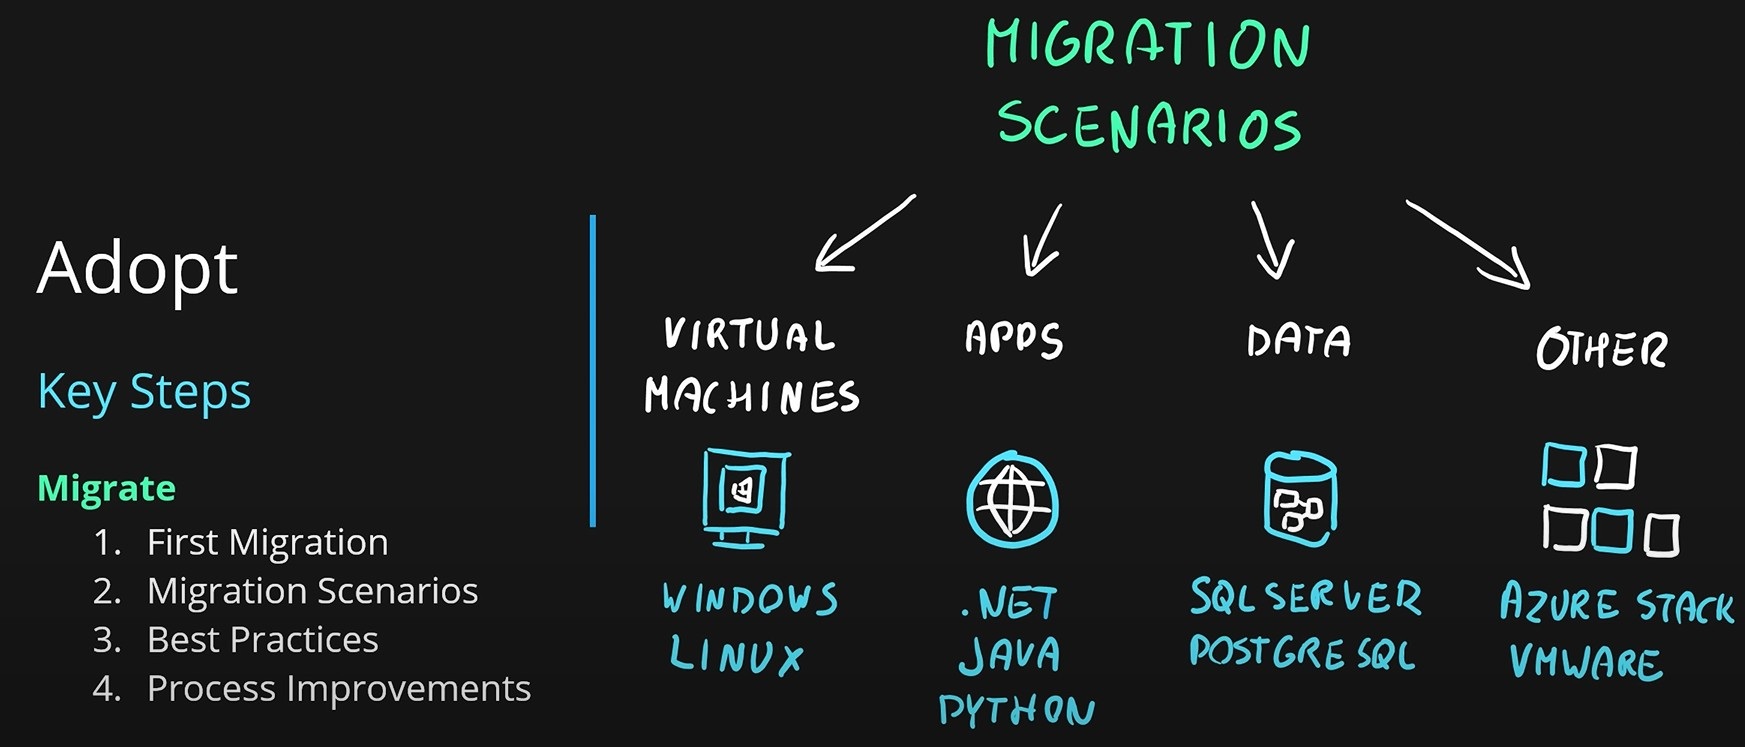 Adopt
Key Steps
Migrate
1. First Migration
2. Migration Scenarios
3. Best Practices
4. Process Improvements
MIGRATION
SCENARIOS
VIRTUAL
MACHINES
WINDOWS
LINUX
APPS
.NET
JAVA
PYTHON
DATA
SQL SERVER
POSTGRESQL
OTHER
AZURE STACK
VMWARE